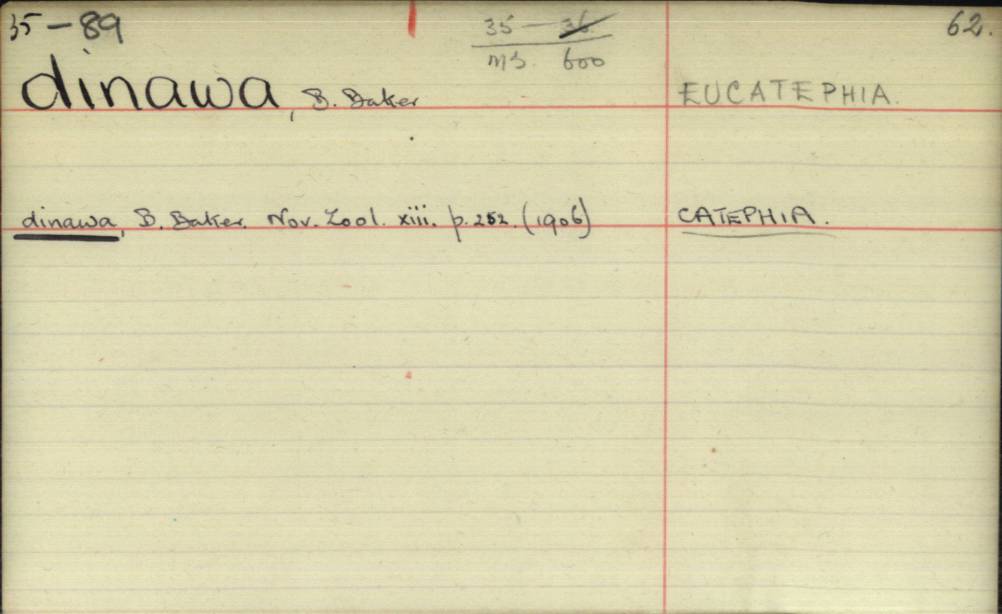 35-89 35-36 62.
MS. 600
dinawa, B. Baker EUCATEPHIA.
dinawa, B. Baker. Nov. Zool. xiii. p. 252. (1906) CATEPHIA.